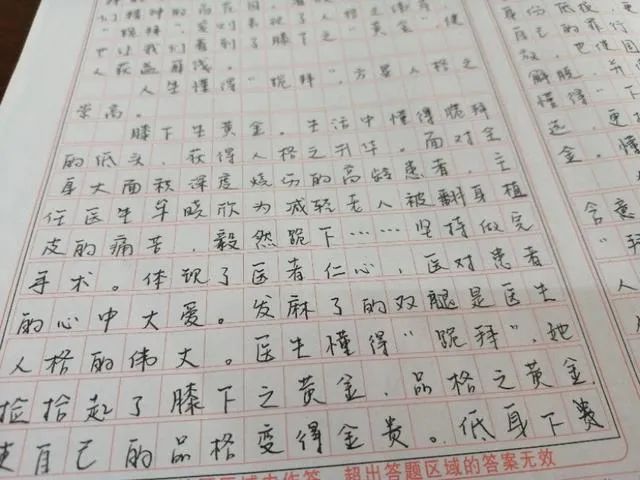 们精神的高
"跪拜",
也让我们看到了膝下之"黄金",使
人获益
人生懂得"跪拜",方显人格之
崇高。
膝下生黄金。生活中懂得跪拜
的低头,获得人格之升华。面对全
身大面积深度烧伤的高龄患者,主
任医生牟晓欣为减轻老人被翻身植
皮的痛苦,毅然跪下……坚持做完
手术。体现了医者仁心,医对患者
的心中大爱。发麻了的双腿是医生
人格的伟丈。医生懂得"跪拜",她
捡拾起了膝下之黄金,品格之黄金,
使自己的品格变得金贵。低身下贵
超出答题区域的答案无效
身份低
自己的罪行
放,也使
解脱,
懂得"下
选,更
金,懂
含意
"拜
人
人